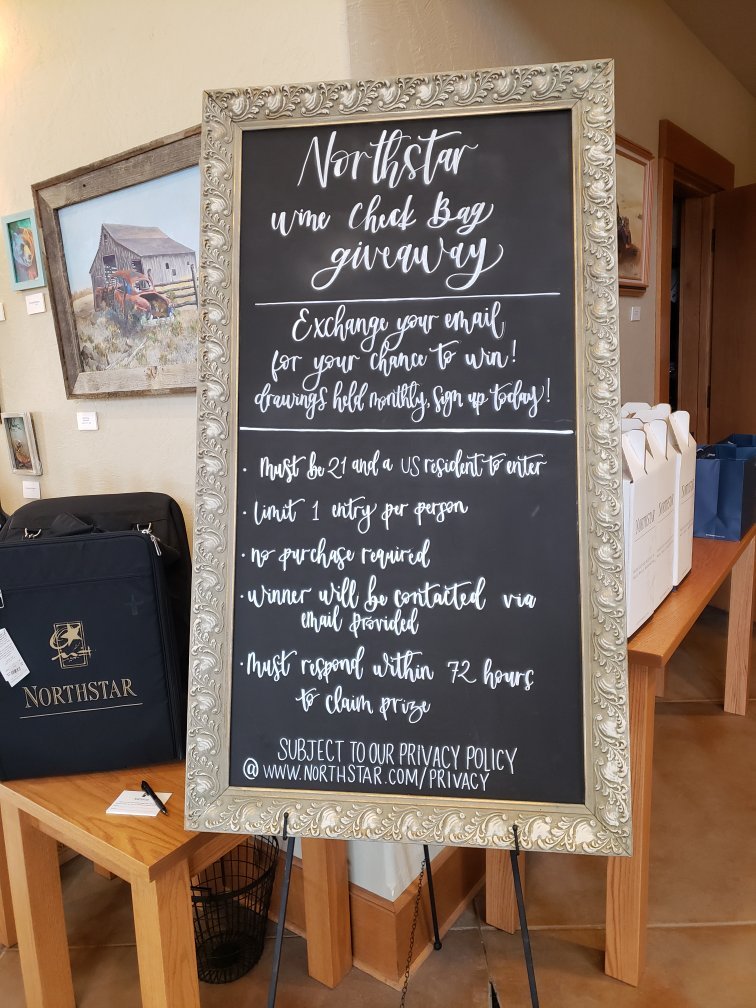 Northstar
Wine Check Bag
giveaway
Exchange your email
for your chance to win!
drawings held monthly, sign up today!
· Must be 21 and a US resident to enter
· limit 1 entry per person
· no purchase required
· winner will be contacted via
email provided
· Must respond within 72 hours
to claim prize
SUBJECT TO OUR PRIVACY POLICY
@ WWW.NORTHSTAR.COM/PRIVACY
NORTHSTAR
NORTHSTAR